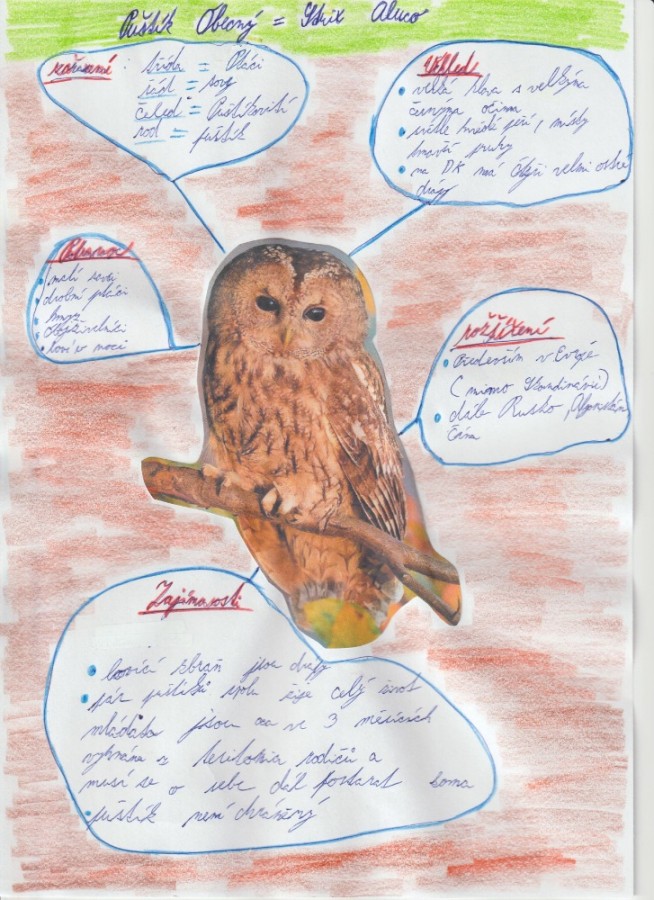 Puštík Obecný = Strix Aluco
zařazení: třída = Ptáci
řád = sovy
čeleď = Puštíkovití
rod = puštík
Vzhled
velká hlava s velkýma
černýma očima
světle hnědé peří, místy
tmavší pruhy
má čtyři velmi ostré
drápy
Potrava
malí savci
drobní ptáci
hmyz
obojživelníci
loví v noci
rozšíření
Především v Evropě
(mimo Skandinávie)
dále Rusko,
Čína
Zajímavosti
lovící zbraň jsou drápy
pár puštíků spolu žije celý život
mláďata jsou ve 3 měsících
vyhnána z teritoria rodičů a
musí se o sebe dál postarat sama
puštík není chráněný